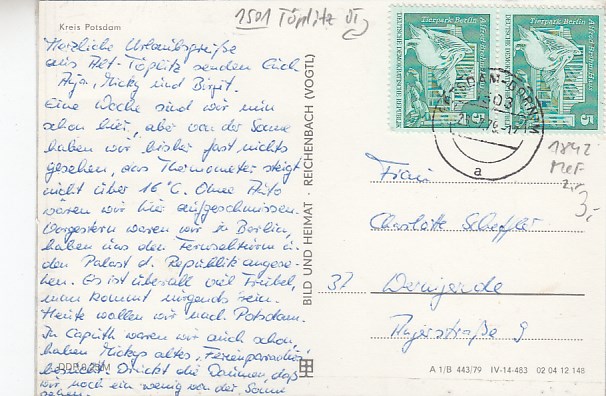 1501 Töplitz
Kreis Potsdam
Herzliche Urlaubsgrüße
aus Alt-Töplitz senden Euch
Anja, Micky und Birgit.
Eine Woche sind wir nun
schon hier, aber von der Sonne
haben wir bisher fast nichts
gesehen, das Thermometer steigt
nicht über 16°C. Ohne Auto
wären wir hier aufgeschmissen.
Vorgestern waren wir in Berlin,
haben uns den Fernsehturm u.
den Palast d. Republik angese-
hen. Es ist überall viel Trubel,
man kommt nirgends rein.
Heute wollen wir nach Potsdam.
In Caputh waren wir auch schon,
haben Mickys altes "Ferienparadies"
besucht. Drückt die Daumen, daß
wir noch ein wenig von der Sonne
sehen.
DDR 0,25 M
BILD UND HEIMAT · REICHENBACH (VOGTL)
Tierpark Berlin
Alfred-Brehm-Haus
DEUTSCHE DEMOKRATISCHE REPUBLIK
5
Tierpark Berlin
Alfred-Brehm-Haus
DEUTSCHE DEMOKRATISCHE REPUBLIK
5
POTSDAM-BORNIM
a
1842
MeF
3,-
Frau
Charlotte Scheffler
37 Wernigerode
Ilsenburger
A 1/B 443/79 IV-14-483 02 04 12 148